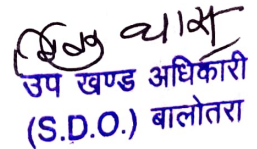 उप खण्ड अधिकारी
(S.D.O.) बालोतरा